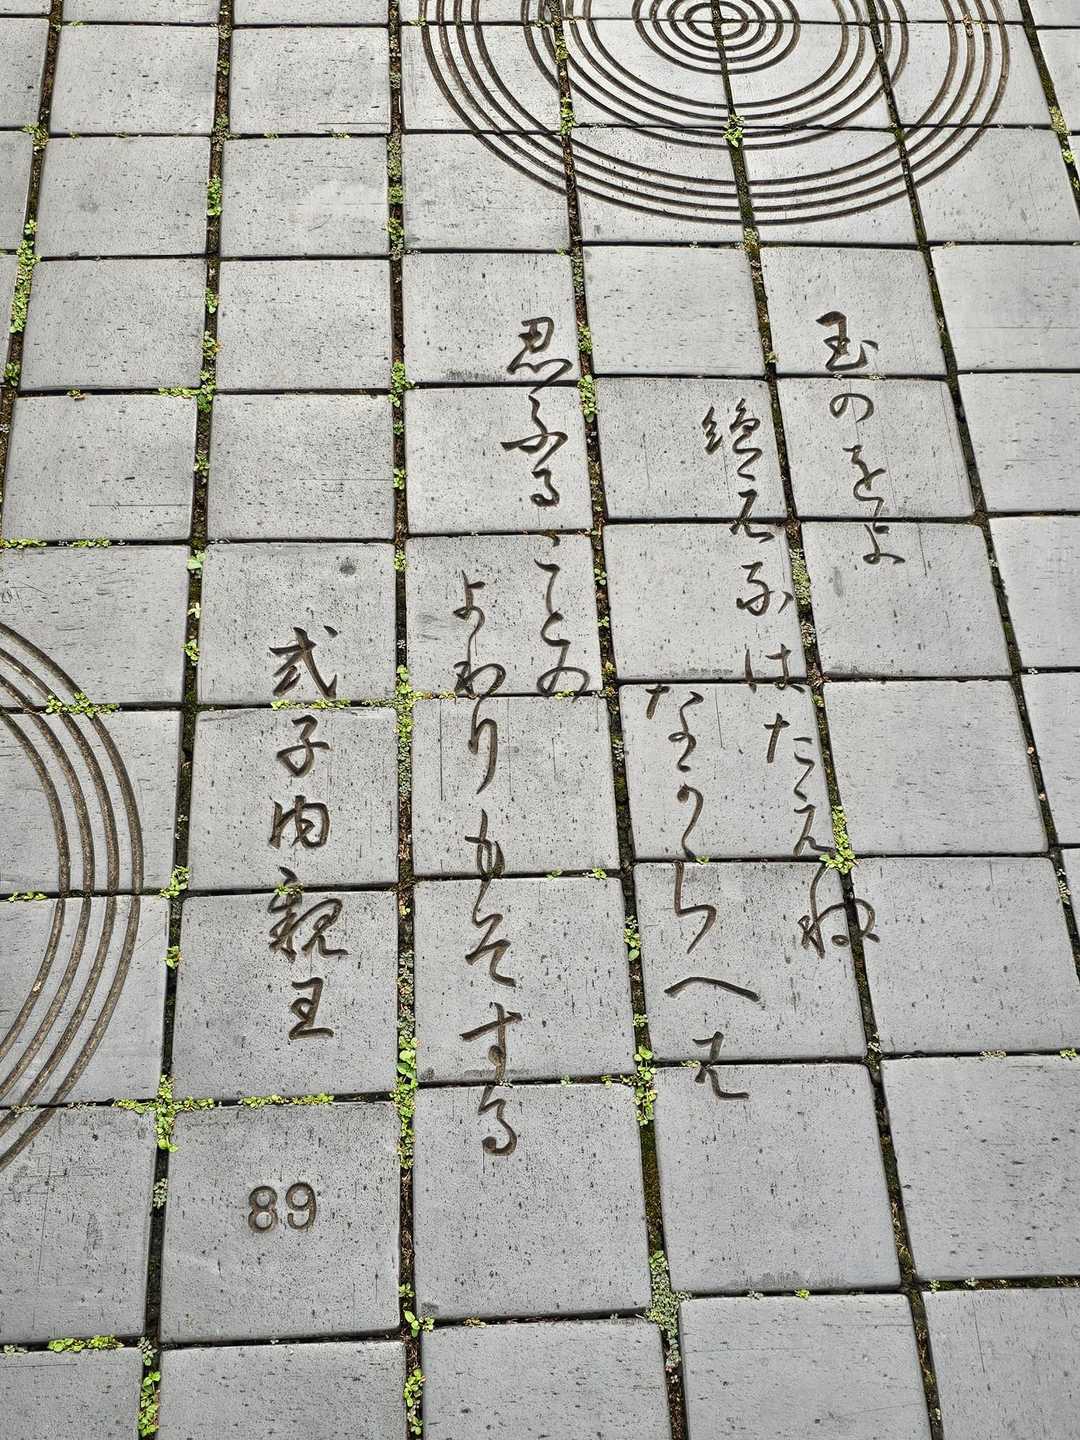 玉のをよ
絶えなはたえね
なからへは
忍ふる
ことの
よわりもそする
式子内親王
89